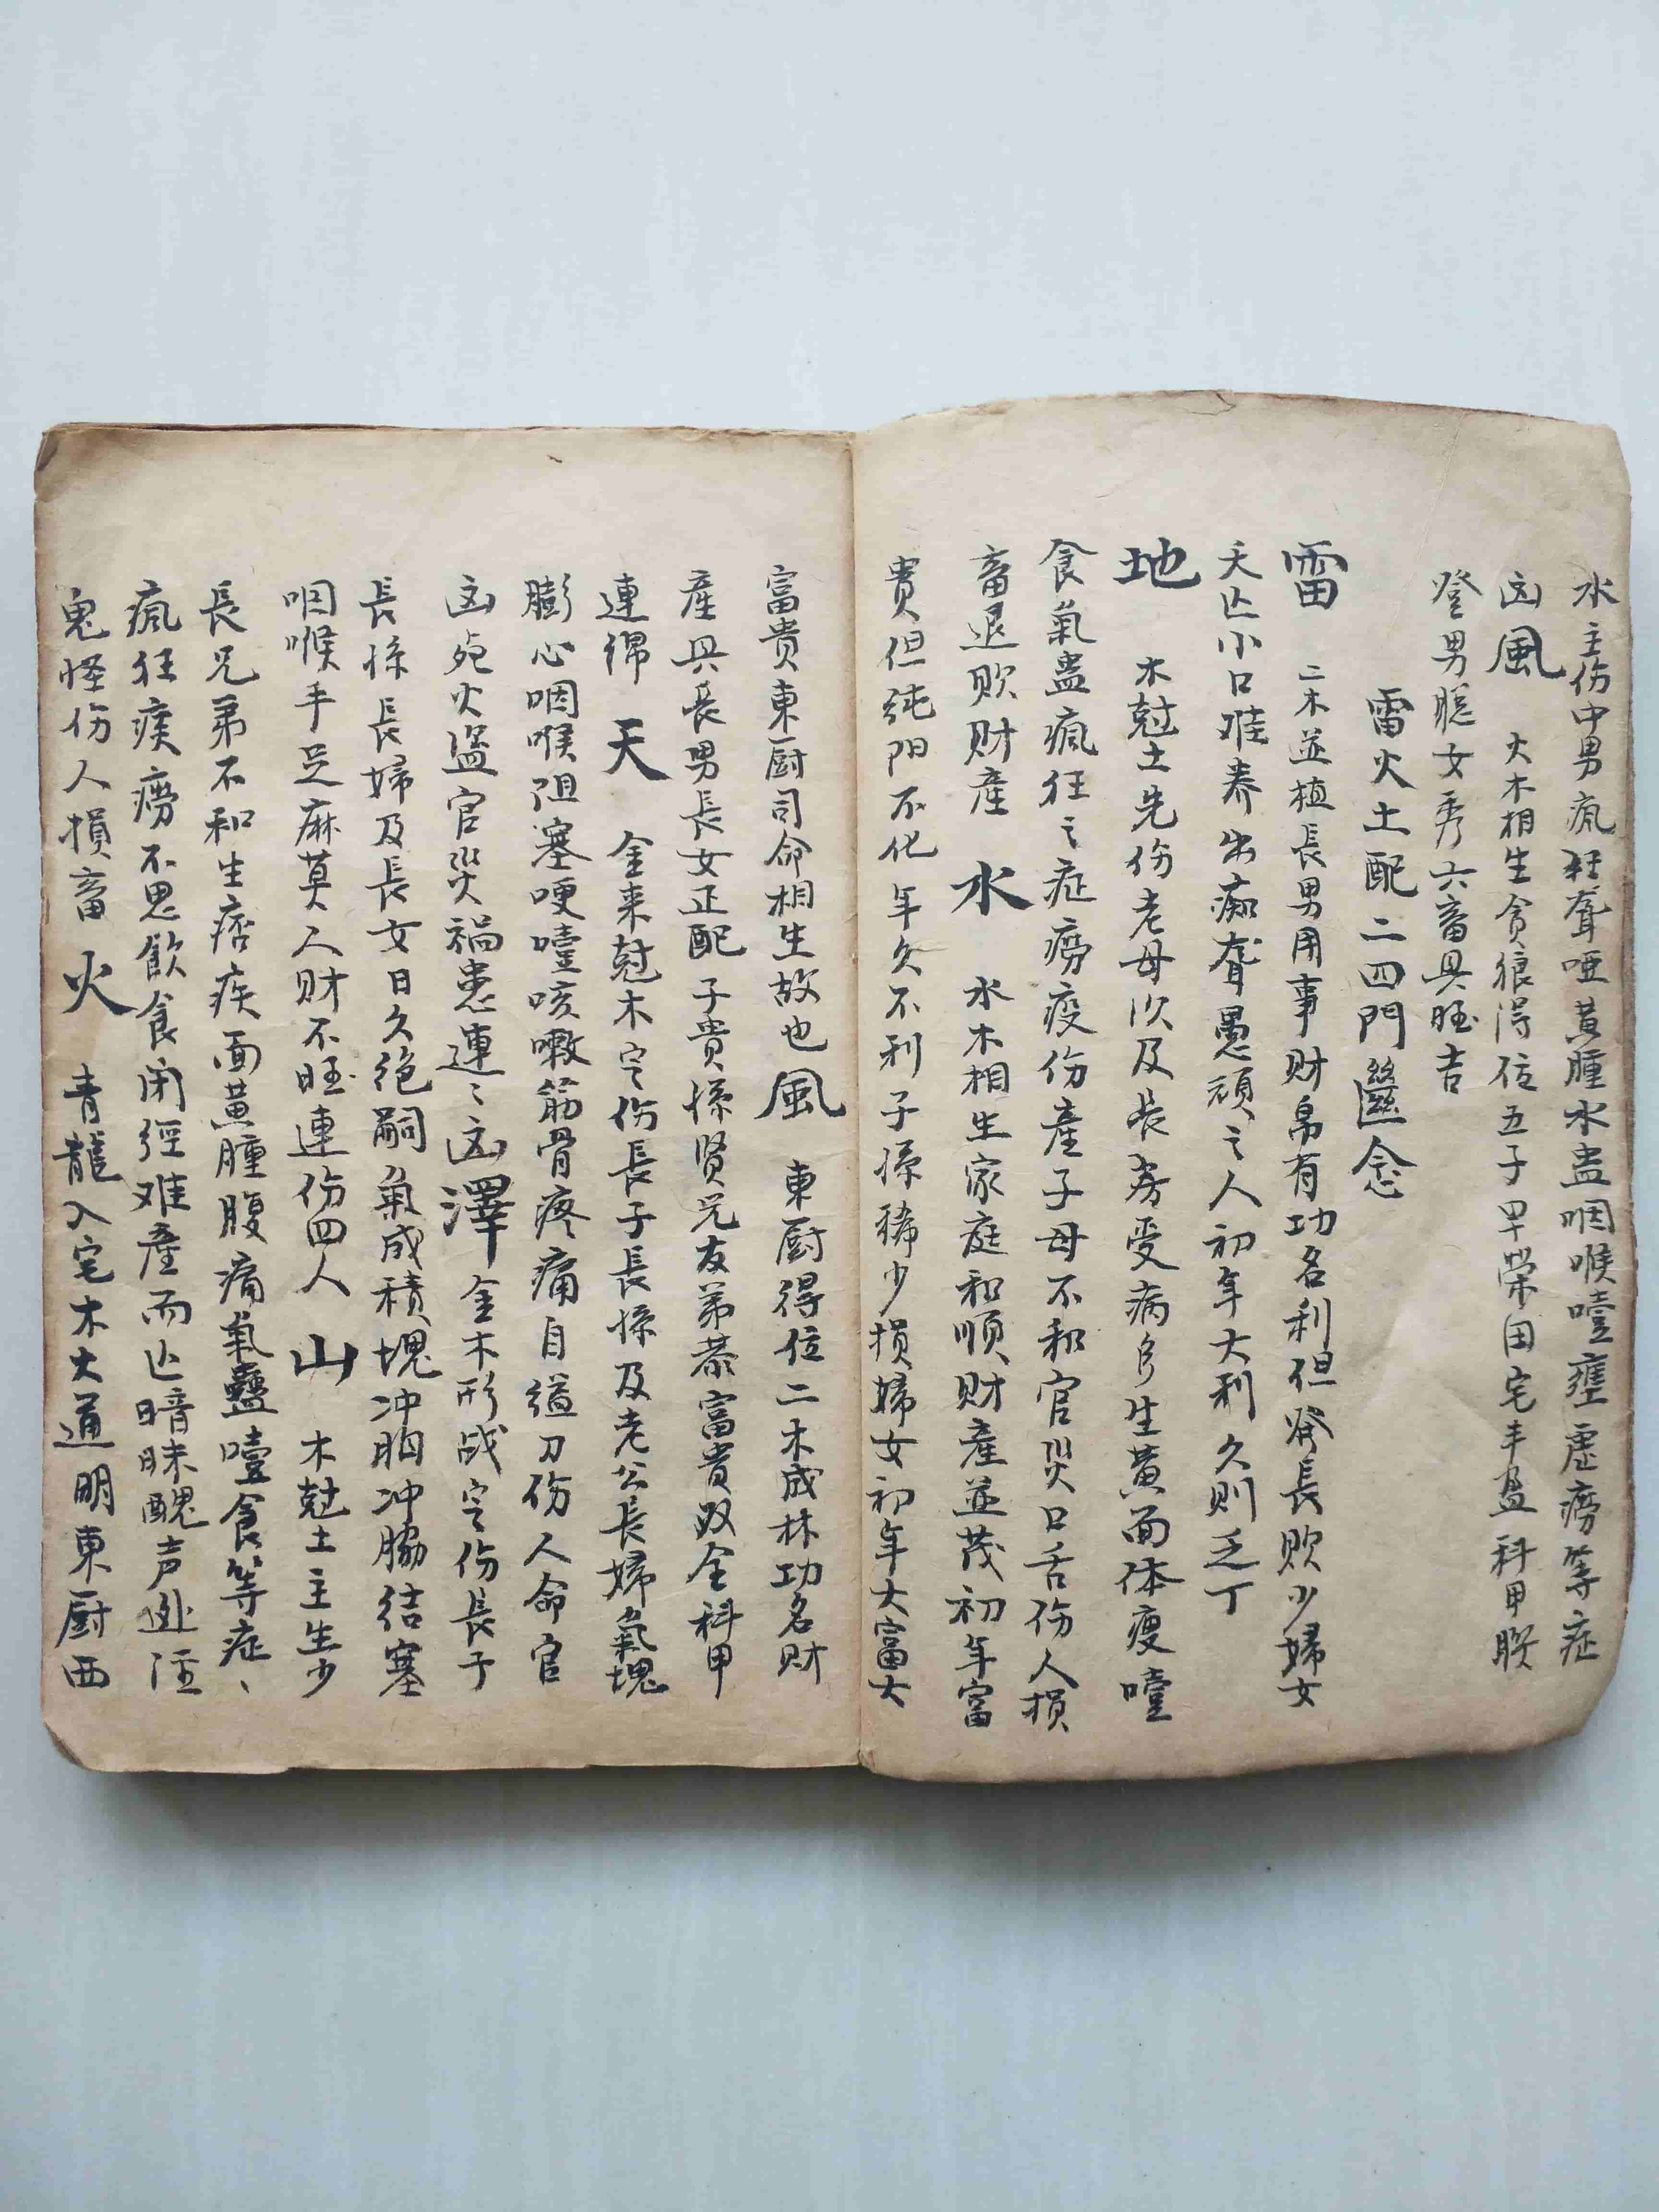 水主伤中男疯狂聋哑黄腫水蛊咽喉噎壅虚痨等症
凶風 火木相生貪狼得位五子早荣田宅丰盈科甲联
登男聪女秀六畜興旺吉
雷火土配二四門
雷 二木並植長男用事财帛有功名利但發長败少婦女
夭亡小口难养出痴聋愚頑之人初年大利久则乏丁
地 木尅土先伤老母次及長房受病多生黄面体瘦噎
食氣蛊瘋狂之症痨疫伤産子母不和官災口舌伤人損
畜退败财産 水 水木相生家庭和順财產並茂初年富
貴但純阳不化年久不利子孫稀少損婦女初年大富大
富贵東厨司命相生故也風 東厨得位二木成林功名财
産興長男長女正配子貴孫贤兄友弟恭富貴双全科甲
連绵 天 金来尅木定伤長子長孫及老公長婦氣塊
膨心咽喉阻塞哽噎咳嗽筋骨疼痛自缢刀伤人命官
凶死火盜官災禍患連〻凶澤 金木形战定伤長子
長孫長婦及長女日久絶嗣氣成積塊冲胸冲脇结塞
咽喉手足麻莫人财不旺連伤四人 山 木尅土主生少
長兄弟不和生痞疾面黄腫腹痛氣蠱噎食等症、
瘋狂痰痨不思飲食闭經难產而亡暗昧醜声邪淫
鬼怪伤人損畜 火 青龍入宅木火通明東厨西